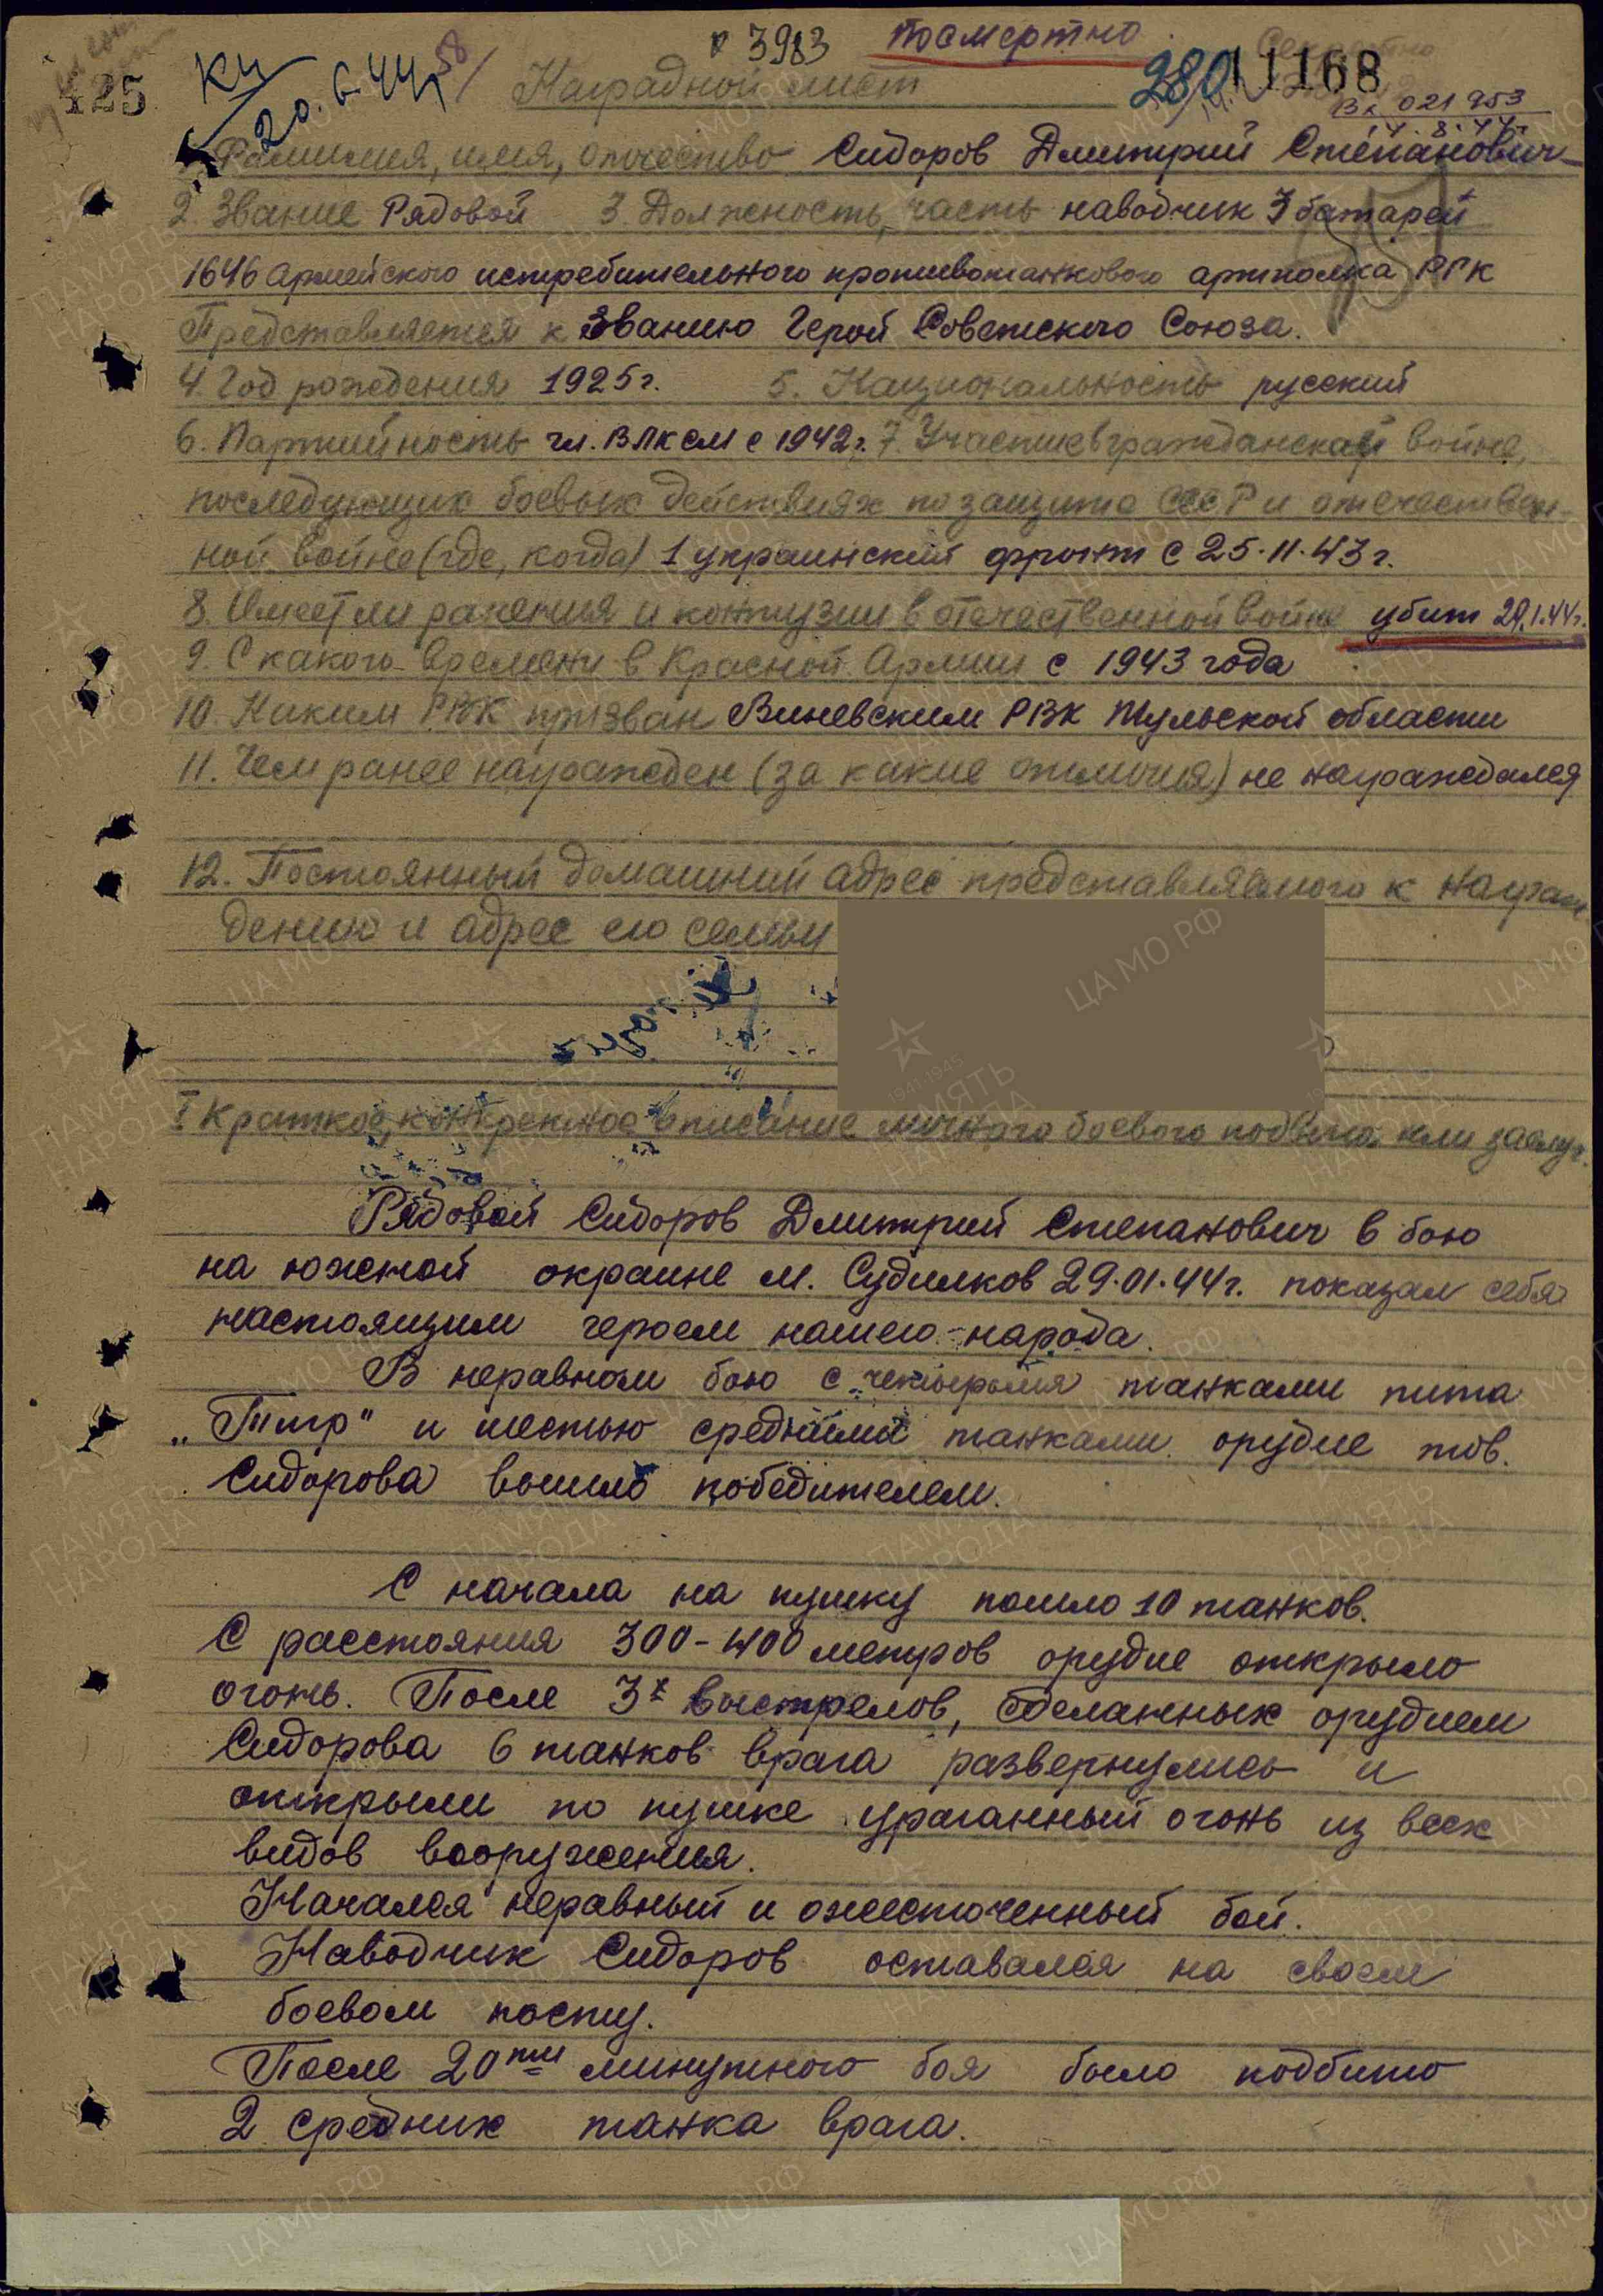 Посмертно
425
КЧ
20.6.44
58/
3983
280
11168
Вх 021953
Наградной лист
1. Фамилия, имя, отчество Сидоров Дмитрий Степанович
2. Звание Рядовой 3. Должность, часть наводчик 3 батареи
1646 Армейского истребительного противотанкового артполка РГК
Представляется к Званию Герой Советского Союза.
4. Год рождения 1925 г. 5. Национальность русский
6. Партийность чл. ВЛКСМ с 1942 г. 7. Участие в гражданской войне,
последующих боевых действиях по защите СССР и отечествен-
ной войне (где, когда) 1 украинский фронт с 25.11.43 г.
8. Имеет ли ранения и контузии в отечественной войне убит 29.1.44 г.
9. С какого времени в Красной Армии с 1943 года
10. Каким РВК призван Виневским РВК Тульской области
11. Чем ранее награжден (за какие отличия) не награждался
12. Постоянный домашний адрес представляемого к награж
дению и адрес его семьи
I Краткое, конкретное описание личного боевого подвига или заслуг.
Рядовой Сидоров Дмитрий Степанович в бою
на южной окраине м. Судилков 29.01.44 г. показал себя
настоящим героем нашего народа.
В неравном бою с четырьмя танками типа
„Тигр" и шестью средними танками орудие тов.
Сидорова вышло победителем.
С начала на пушку пошло 10 танков.
С расстояния 300-400 метров орудие открыло
огонь. После 3х выстрелов, сделанных орудием
Сидорова 6 танков врага развернулись и
открыли по пушке ураганный огонь из всех
видов вооружения.
Начался неравный и ожесточенный бой.
Наводчик Сидоров оставался на своем
боевом посту.
После 20ти минутного боя было подбито
2 средних танка врага.